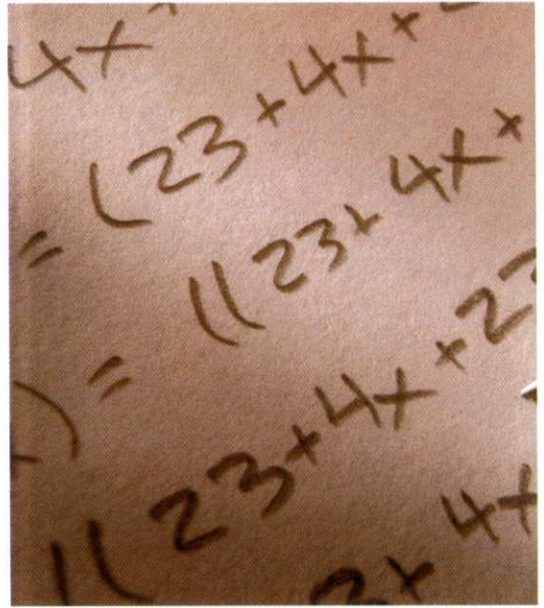 4x
= (23+4x+
((23+ 4x+
) =
((23+4x+2
3+ 4x